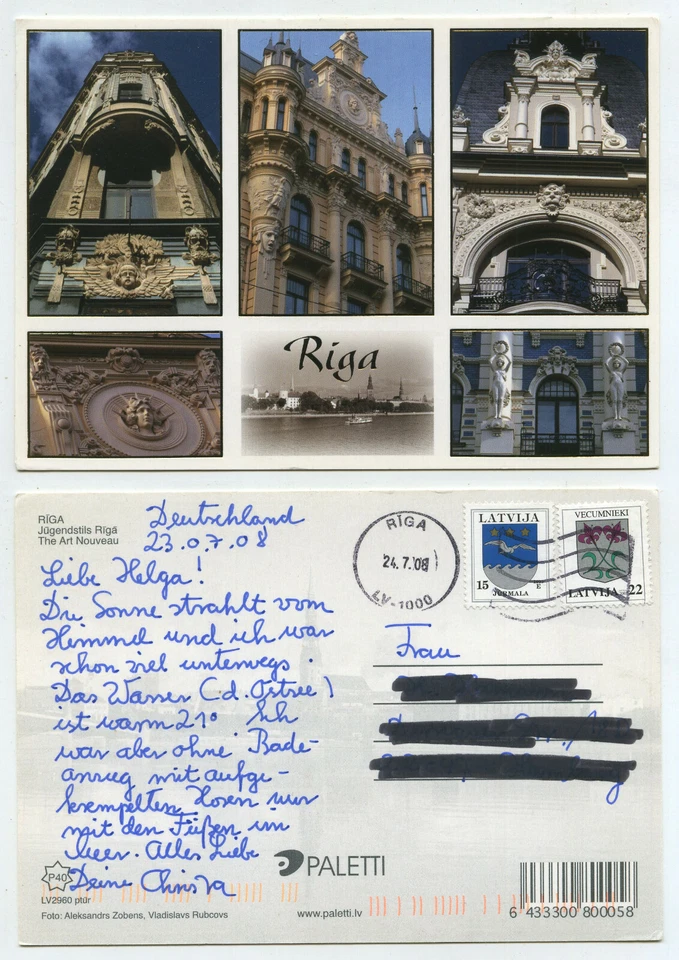 Riga
RĪGA
Jūgendstils Rīgā
The Art Nouveau
Deutschland
23.07.08
Liebe Helga!
Die Sonne strahlt vom
Himmel und ich war
schon viel unterwegs.
Das Wasser (d. Ostsee)
ist warm 21°. Ich
war aber ohne Bade-
anzug mit aufge-
krempelten Hosen nur
mit den Füßen im
Meer. Alles Liebe
Deine Christa
P40
LV2960 ptūr
Foto: Aleksandrs Zobens, Vladislavs Rubcovs
RĪGA
24.7.08
LV-1000
LATVIJA
15 E
JŪRMALA
VECUMNIEKI
LATVIJA 22
Frau
PALETTI
www.paletti.lv
6 433300 800058